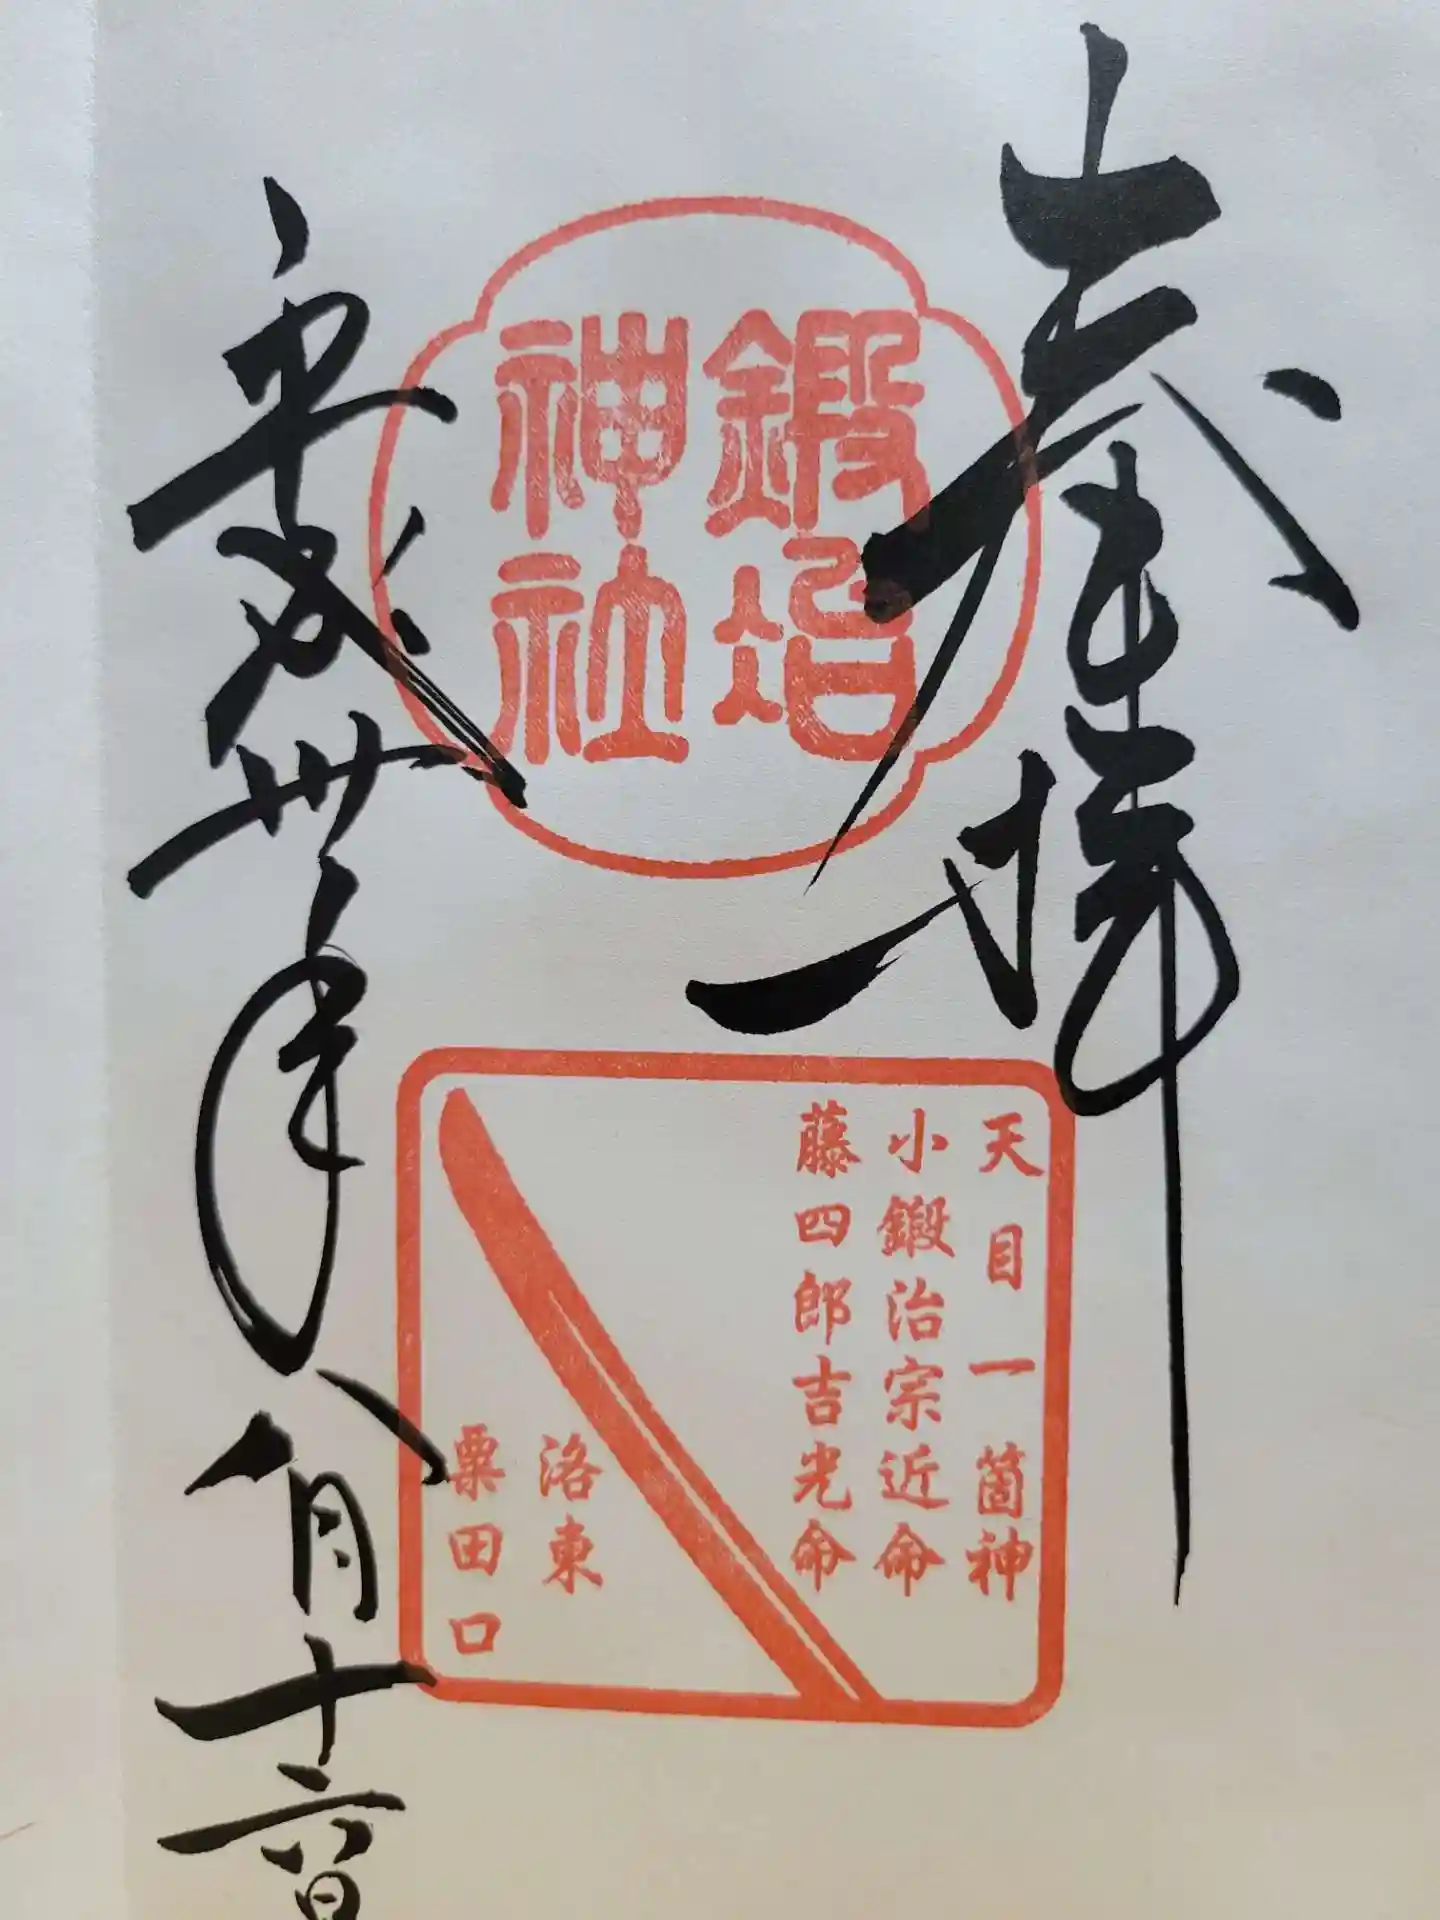 奉拝
鍛冶
神社
天目一箇神
小鍛治宗近命
藤四郎吉光命
洛東
粟田口
平成卅年八月十六日